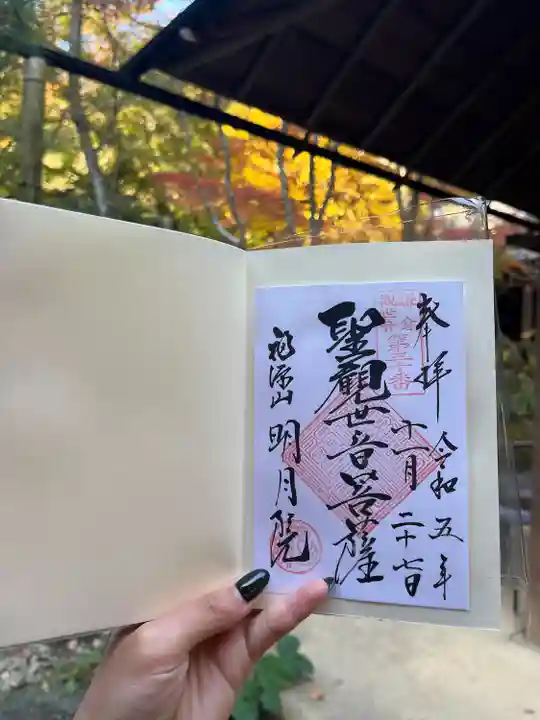 奉拝
令和五年
十一月二十七日
鎌倉
観世音
第三十番
聖観世音菩薩
福源山
明月院